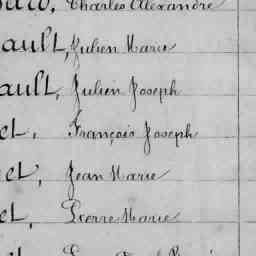 Charles Alexandre
ault, Julien Marie
ault, Julien Joseph
et, François Joseph
et, Jean Marie
et, Pierre Marie